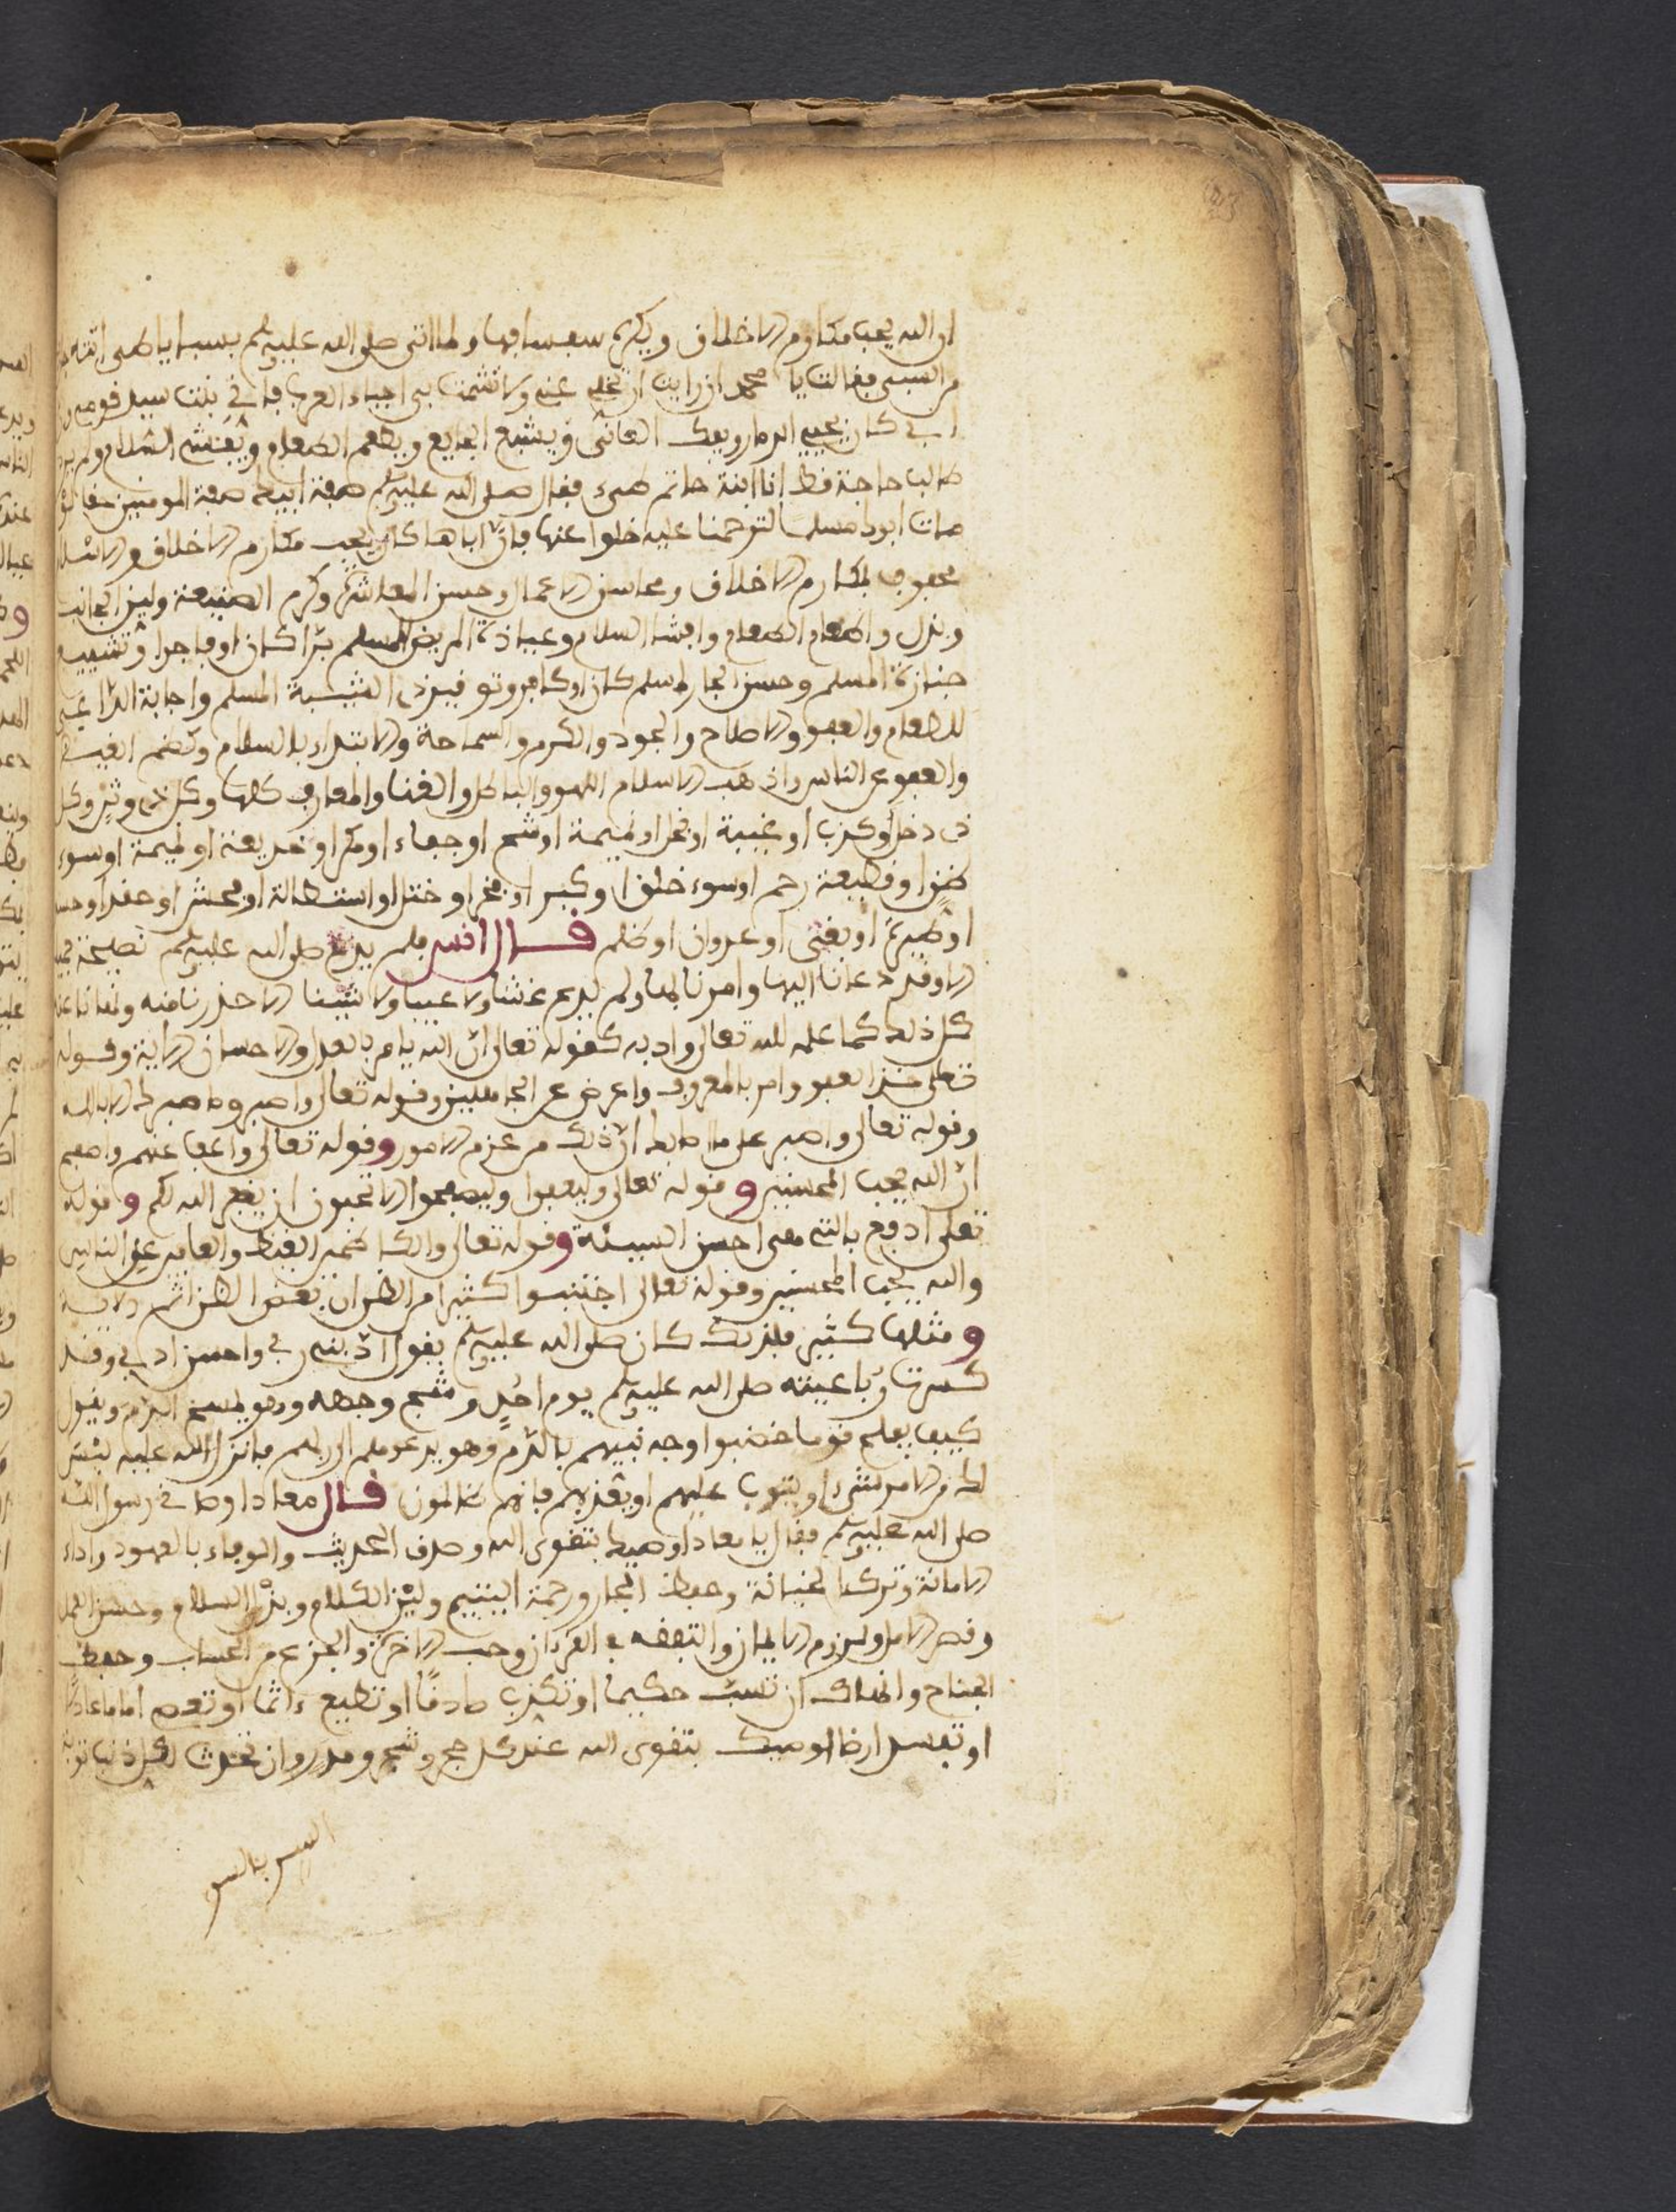 ان الله يحب مكارم الاخلاق ويكره سفسافها ولما اتى صلى الله عليه وسلم بسبايا طيى
من السبي فقالت يا محمد ان رايت ان تخلي عني ولا تشمت بي احياء العرب فاني بنت سيد قومي
ابي كان يحمي الذمار ويفك العاني ويشبع الجايع ويطعم الطعام ويفشي السلام ولم يرد
طالب حاجة قط انا ابنة حاتم طيء فقال صلى الله عليه وسلم صفة ابيك صفة المومنين حقا لو
مات ابوك مسلما لترحمنا عليه خلوا عنها فان اباها كان يحب مكارم الاخلاق والاسلام
محفوف بمكارم الاخلاق ومحاسن الاعمال وحسن المعاشرة وكرم الصنيعة ولين الجانب
وبذل واطعام الطعام وافشا السلام وعيادة المريض المسلم برا كان او فاجرا وتشييع
جنازة المسلم وحسن الجار مسلم كان او كافر وتوقير ذي الشيبة المسلم واجابة الداعي
للطعام والعفو والاصلاح والجود والكرم والسماحة والابتداء بالسلام وكظم الغيظ
والعفو عن الناس واذهب الاسلام اللهو والباطل والغنا والمعازف كلها وكل ذي وتر وكل
ذي دخل وكذب او غيبة او بخل او نميمة او شح او جفاء او مكر او خديعة او نميمة او سوء
ظن او قطيعة رحم او سوء خلق او كبر او فخر او ختل او استطالة او فحش او حقد او حسد
او طيرة او بغي او عدوان او ظلم قال انس فلم يدع صلى الله عليه وسلم نصيحة جميلة
الا وقد دعانا اليها وامرنا بها ولم يدع غشا ولا عيبا ولا شينا الا حذرنا منه ونهانا عنه
كل ذلك كما علمه الله تعالى وادبه كقوله تعالى ان الله يامر بالعدل والاحسان الاية وقوله
تعلى خذ العفو وامر بالمعروف واعرض عن الجاهلين وقوله تعالى واصبر وما صبرك الا بالله
وقوله تعالى واصبر على ما اصابك ان ذلك من عزم الامور وقوله تعالى واعف عنهم واصفح
ان الله يحب المحسنين وقوله تعالى وليعفوا وليصفحوا الا تحبون ان يغفر الله لكم وقوله
تعلى ادفع بالتي هي احسن السيئة وقوله تعالى والكاظمين الغيظ والعافين عن الناس
والله يحب المحسنين وقوله تعالى اجتنبوا كثيرا من الظن ان بعض الظن اثم الاية
ومثلها كثير فلذلك كان صلى الله عليه وسلم يقول ادبني ربي واحسن ادبي وقد
كسرت رباعيته صلى الله عليه وسلم يوم احد وشج وجهه وهو يمسح الدم ويقول
كيف يفلح قوما خضبوا وجه نبيهم بالدم وهو يدعوهم الى ربهم فانزل الله عليه ليس
لك من الامر شيء او يتوب عليهم او يعذبهم فانهم ظالمون قال معاد اوصاني رسول الله
صلى الله عليه وسلم فقال يا معاد اوصيك بتقوى الله وصدق الحديث والوفاء بالعهود واداء
الامانة وترك الخيانة وحفظ الجار ورحمة اليتيم ولين الكلام وبذل السلام وحسن العمل
وقصر الامل ولزوم الايمان والتفقه في القرءان وحب الاخرة والجزع من الحساب وخفض
الجناح وانهاك ان تسب حكيما او تكذب صادقا او تطيع ءاثما او تعصي اماما عادلا
او تفسد ارضا اوصيك بتقوى الله عند كل حجر وشجر ومدر وان تحدث لكل ذنب توبة
السر بالسر